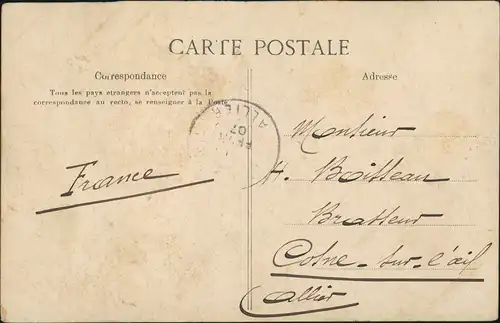 CARTE POSTALE
Correspondance
Tous les pays etrangers n'acceptent pas la
correspondance au recto, se renseigner à la Poste
Adresse
ALLIER
07
France
Monsieur
H. Boisseau
Brasseur
Cosne-sur-l'œil
Allier